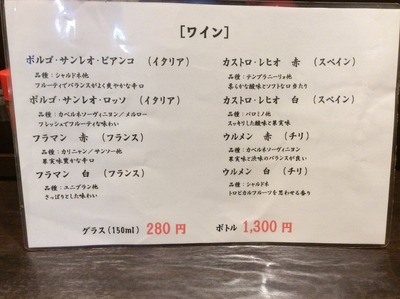 [ワイン]
ボルゴ・サンレオ・ビアンコ (イタリア)
品種：シャルドネ他
フルーティでバランスがよく爽やかな辛口
ボルゴ・サンレオ・ロッソ (イタリア)
品種：カベルネソーヴィニヨン／メルロー
フレッシュでフルーティな味わい
フラマン 赤 (フランス)
品種：カリニャン／サンソー他
果実味豊かな辛口
フラマン 白 (フランス)
品種：ユニブラン他
さっぱりとした味わい
カストロ・レヒオ 赤 (スペイン)
品種：テンプラニーリョ他
柔らかな酸味とソフトな口当たり
カストロ・レヒオ 白 (スペイン)
品種：パロミノ他
スッキリした酸味と果実味
ウルメン 赤 (チリ)
品種：カベルネソーヴィニヨン
果実味と渋味のバランスが良い
ウルメン 白 (チリ)
品種：シャルドネ
トロピカルフルーツを思わせる香り
グラス(150ml) 280 円 ボトル 1,300 円